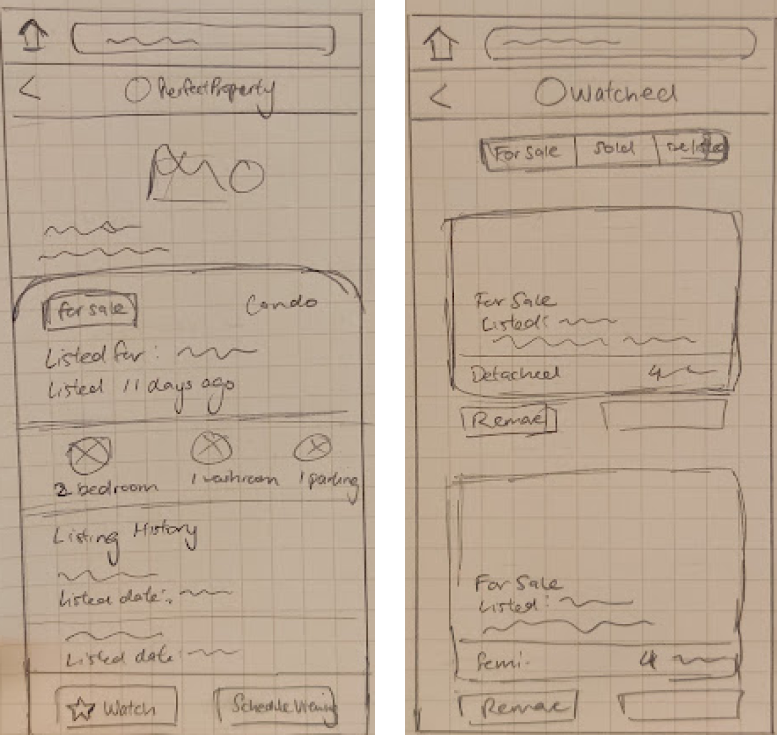 PerfectProperty
For Sale
Condo
Listed for:
Listed 11 days ago
2 bedroom
1 washroom
1 parking
Listing History
Listed date:
Listed date:
Watch
Schedule Viewing
Watched
For Sale
Sold
For Sale
Listed:
Detached
4
Remac
For Sale
Listed:
Semi.
4
Remac